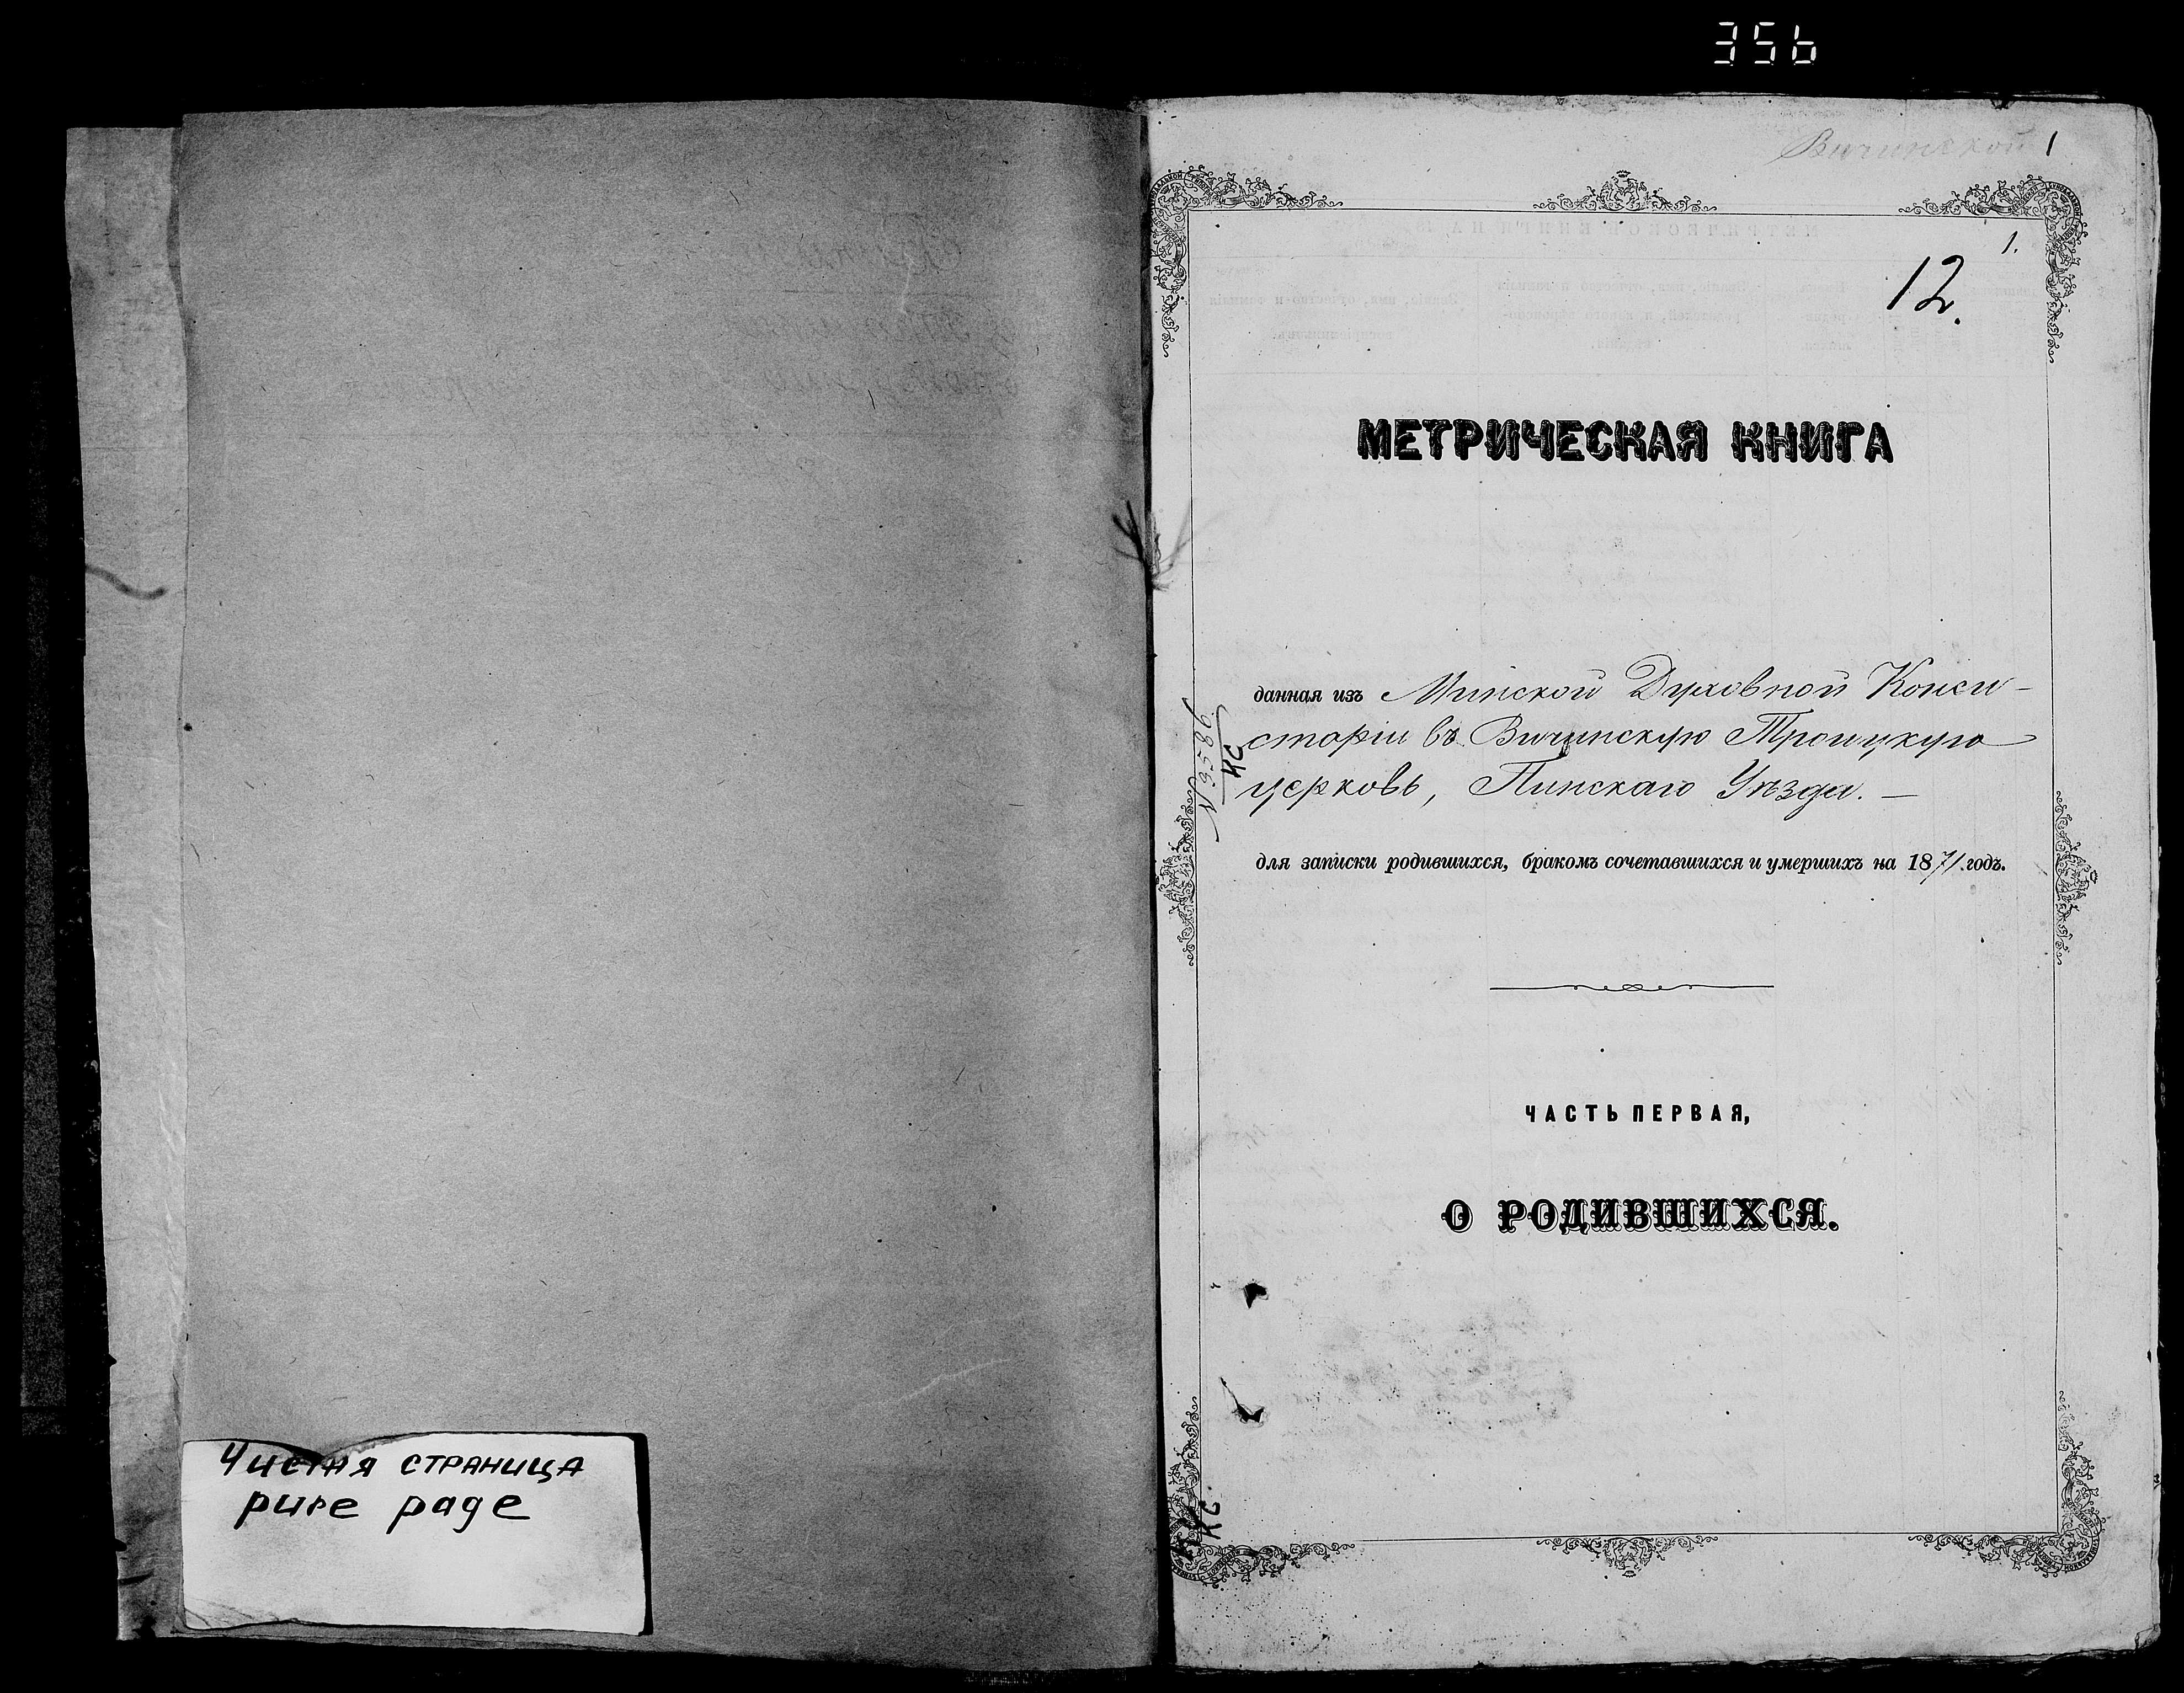 356
Вичинской 1
1.
12.
МЕТРИЧЕСКАЯ КНИГА
данная изъ Минской Духовной Конси-
сторіи въ Вичинскую Троицкую
церковь, Пинскаго Уѣзда. —
для записки родившихся, бракомъ сочетавшихся и умершихъ на 1871. годъ.
ЧАСТЬ ПЕРВАЯ,
О РОДИВШИХСЯ.
Чистая страница
pure page